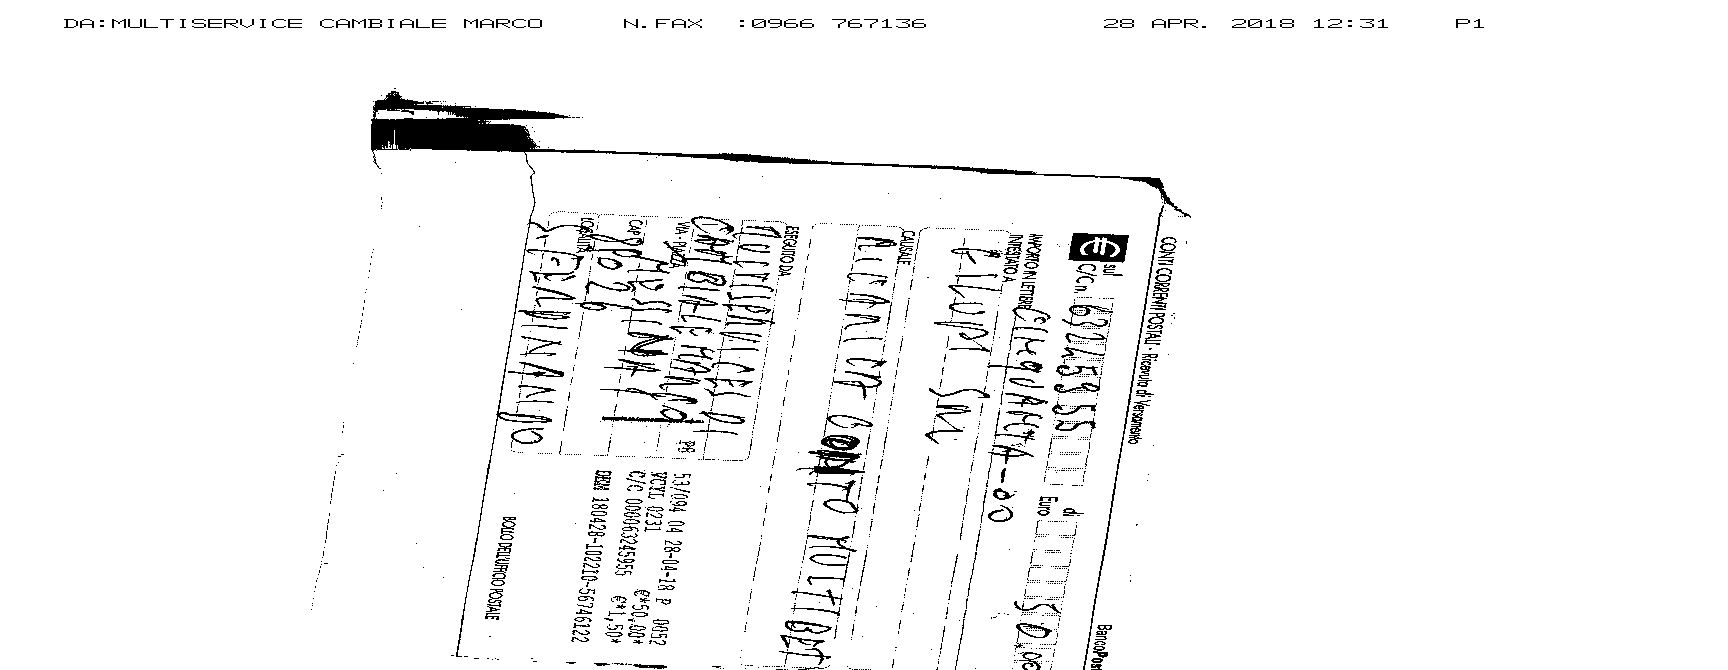 DA:MULTISERVICE CAMBIALE MARCO N.FAX :0966 767136 28 APR. 2018 12:31 P1
CONTI CORRENTI POSTALI - Ricevuta di Versamento
BancoPos
sul C/C n. di Euro 50,00
IMPORTO IN LETTERE CINQUANTA-00
INTESTATO A
CAUSALE
RICARICA CONTO MULTIBET
ESEGUITO DA
MULTISERVICES DI
CAMBIALE MARCO
VIA - PIAZZA MESSINA 11
CAP 89026
LOCALITÀ S. FERDINANDO
53/094 04 28-04-18 P 0052
VCYL 0231 €*50,00*
C/C 000063245955 €*1,50*
DEM 180428-102210-56746122
BOLLO DELL'UFFICIO POSTALE